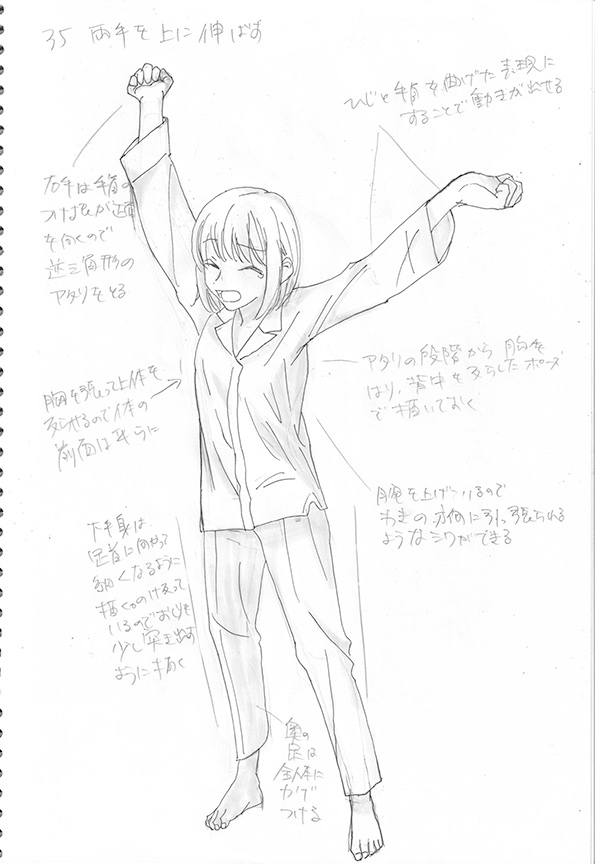 35 両手を上に伸ばす
ひじと手首を曲げた表現に
することで動きが出せる
右手は手首の
つけ
を向くので
逆三角形の
アタリをとる
アタリの段階から胸を
はり、背中を反らしたポーズ
で描いておく
胸を張って上体を
反らせるので体の
前面は平らに
腕を上げているので
わきの方向に引っ張られる
ようなシワができる
下半身は
足首に向かって
細くなるように
描く。のけ反って
いるのでおしりを
少し突き出す
ように描く
奥の
足は
全体に
カゲ
つける